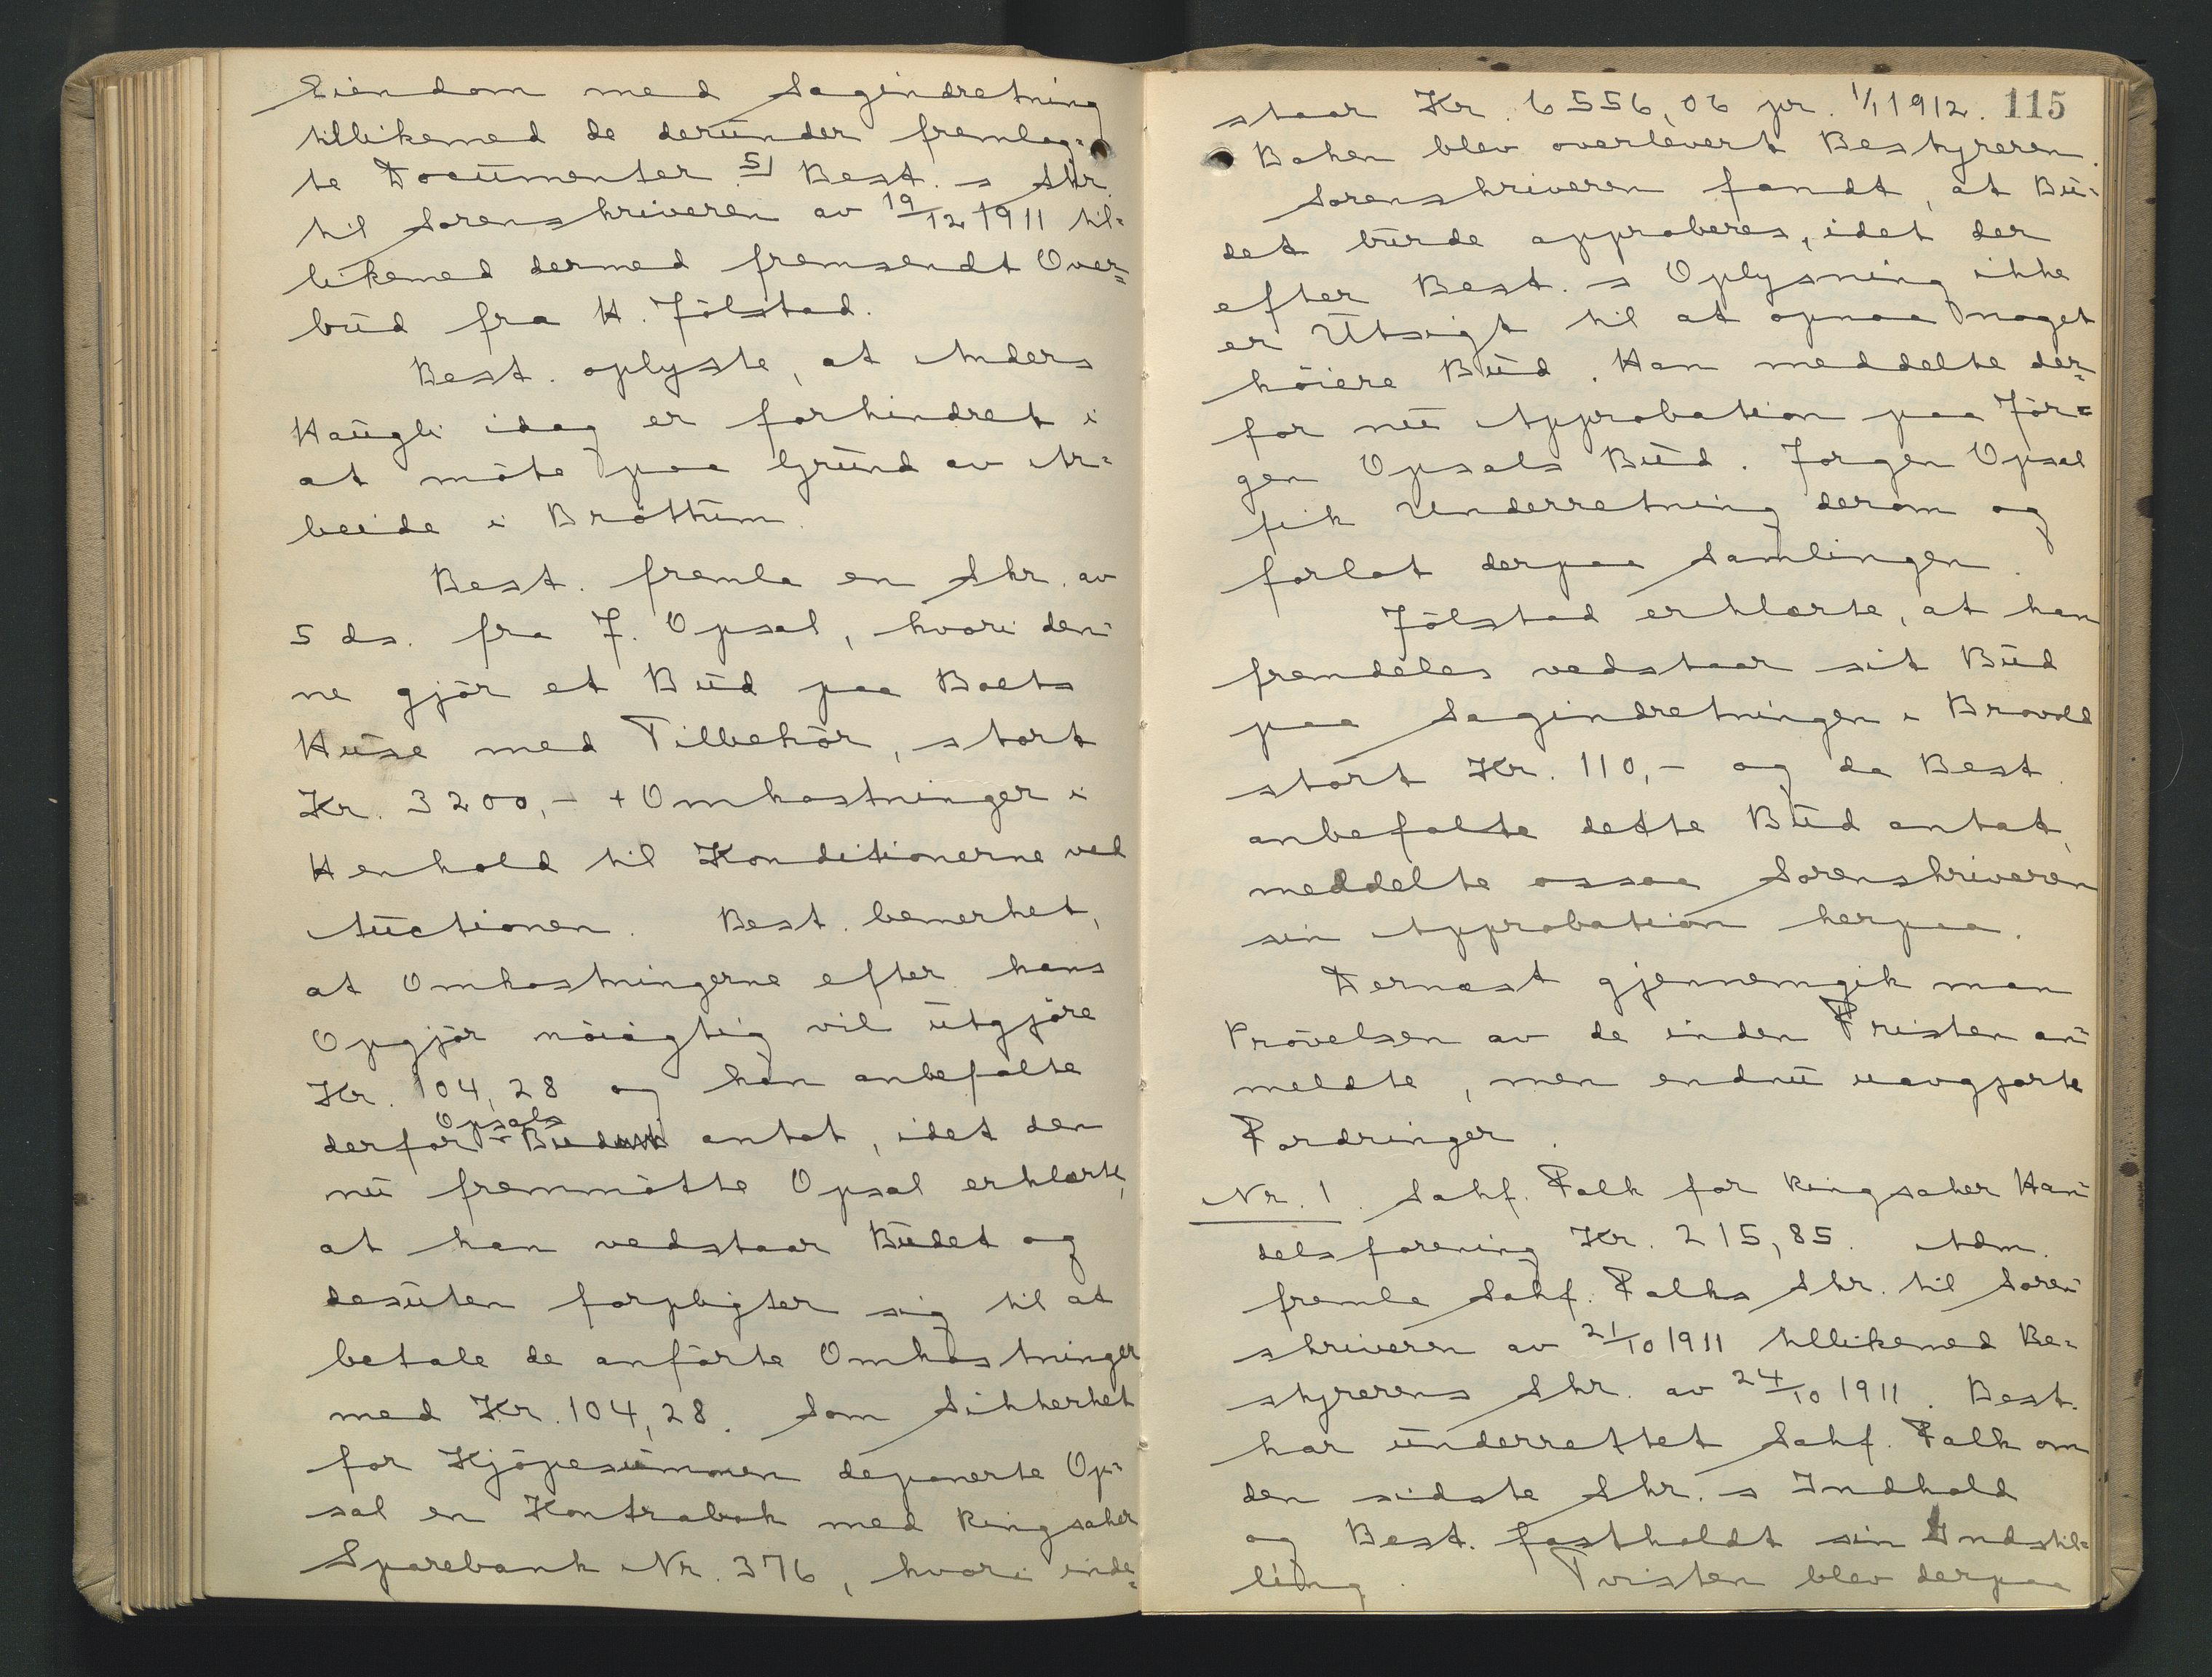 Eiendom med Sagindretning
tillikemed de derunder fremlag-
te Documenter. 5) Best.s Skr.
til Sorenskriveren av 19/12 1911 til-
likemed dermed fremsendt Over-
bud fra H. Jölstad.
Best. oplyste, at Anders
Haugli idag er forhindret i
at möte paa Grund av Ar-
beide i Bröttum.
Best. fremla en Skr. av
5 ds. fra J. Opsal, hvori den-
ne gjör et Bud paa Boets
Huse med Tilbehör, stort
Kr. 3200,- + Omkostninger i
Henhold til Konditionerne ved
Auctionen. Best. bemerket,
at Omkostningerne efter hans
Opgjör nöiagtig vil utgjöre
Kr. 104,28 og han anbefalte
derfor Opsals Bud antat, idet den
nu fremmötte Opsal erklærte,
at han vedstaar Budet og
desuten forpligter sig til at
betale de anförte Omkostninger
med Kr. 104,28. Som Sikkerhet
for Kjöpesummen deponerte Op-
sal en Kontrabok med Ringsaker
Sparebank Nr. 376, hvori inde-
staar Kr. 6556,06 pr. 1/1 1912. 115
Boken blev overlevert Bestyreren.
Sorenskriveren fandt, at Bu-
det burde approberes, idet der
efter Best.s Oplysning ikke
er Utsigt til at opnaa noget
höiere Bud. Han meddelte der-
for nu Approbation paa Jör-
gen Opsals Bud. Jorgen Opsal
fik Underretning derom og
forlot derpaa Samlingen.
Jölstad erklærte, at han
fremdeles vedstaar sit Bud
paa Sagindretningen i Brovold
stort Kr. 110,- og da Best.
anbefalte dette Bud antat,
meddelte ossaa Sorenskriveren
sin Approbation herpaa.
Dernæst gjennemgik man
Prövelsen av de inden Fristen an-
meldte, men endnu uavgjorte
Fordringer.
Nr. 1. Sakf. Falk for Ringsaker Han-
delsforening Kr. 215,85. Adm.
fremla Sakf. Falks Skr. til Soren-
skriveren av 21/10 1911 tillikemed Be-
styrerens Skr. av 24/10 1911. Best.
har underrettet Sakf. Falk om
den sidste Skr.s Indhold
og Best. fastholdt sin Indstil-
ling. Tvisten blev derpaa